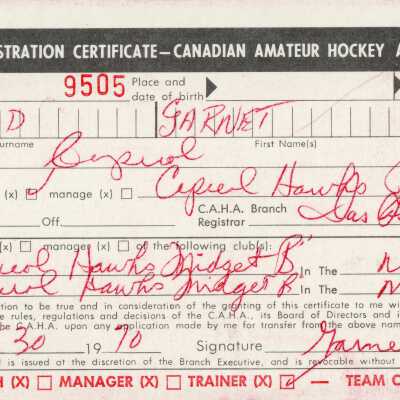 STRATION CERTIFICATE—CANADIAN AMATEUR HOCKEY A
9505 Place and date of birth
D GARNET
urname First Name(s)
(x) manage (x) Hawks
Off. C.A.H.A. Branch Registrar
(x) manager (x) of the following club(s):
Hawks Midget "B" In The
Hawks Midget "B" In The
tion to be true and in consideration of the granting of this certificate to me wi
e rules, regulations and decisions of the C.A.H.A., its Board of Directors and i
e C.A.H.A. upon any application made by me for transfer from the above name
30 1970 Signature Garne
l is issued at the discretion of the Branch Executive, and is revocable without
H (X) MANAGER (X) TRAINER (X) — TEAM O